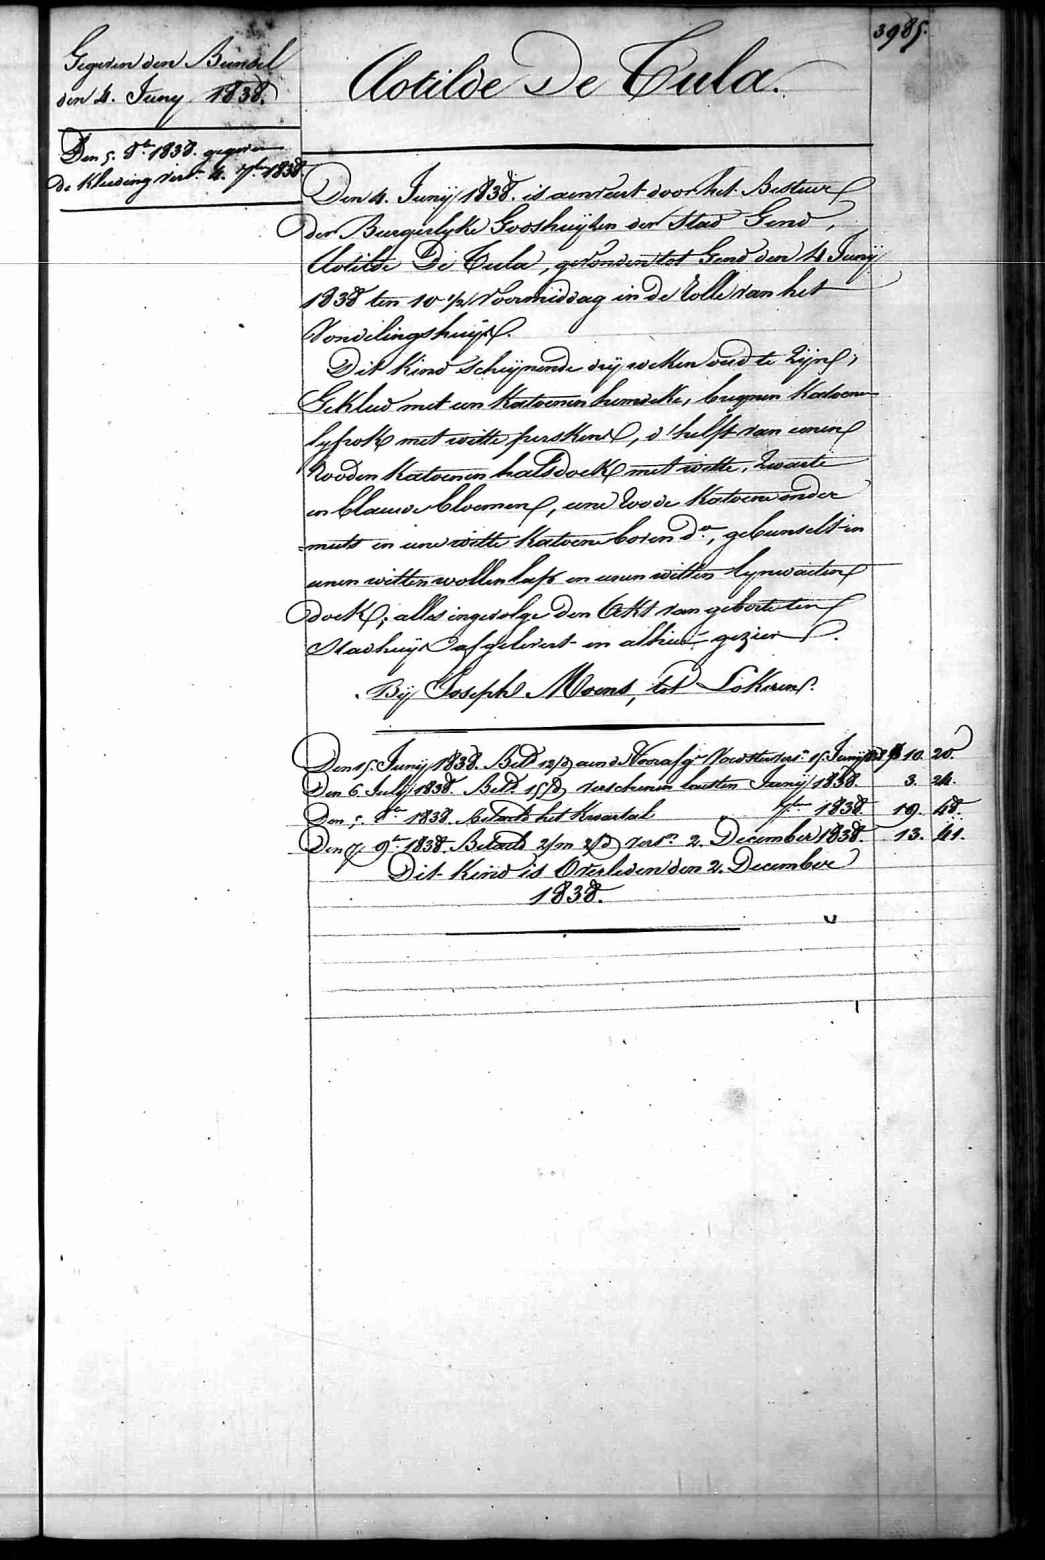 3985.
Gegeven den Bundel
den 4. Juny 1838.
Den 5. 8.re 1838. gegeven
de kleeding vers.n 4. 7.bre 1838
Clotilde De Tula.
Den 4. Junij 1838. is aenveirt door het Bestuer
der Burgerlyke Godshuijsen der Stad Gend,
Clotilde De Tula, gevonden tot Gend den 4 Junij
1838 ten 10 1/2 Voormiddag in de Rolle van het
Vondelingshuijs.
Dit kind scheijnende drij weken oud te zijn,
Gekleed met een katoenen hemdeke, bruynen katoene
lyfrok met witte perskens, d'helft van eenen
Rooden katoenen halsdoek met witte, zwarte
en blauwe bloemen, eene roode katoene onder
muts en eene witte katoene boven d.o, gebunselt in
eenen witten wollen lap en eenen witten lynwaeten
doek; alles ingevolge den Akt van geboorte ten
Stadhuijse afgelevert en alhier gezien.
Bij Joseph Moens, tot Lokeren.
Den 15. Junij 1838. Bet.d 12/d aen d'Voorsz. 15 Junij 1838 10. 20.
Den 6. July 1838. Bet.d 15/d verschenen laesten Junij 1838. 3. 24.
Den 5. 8.re 1838. betaeld het kwartael 7.bre 1838. 19. 48.
Den 7 9.re 1838. Betaeld 2/m 2/d vers.n 2. December 1838. 13. 41.
Dit kind is Overleden den 2. December
1838.